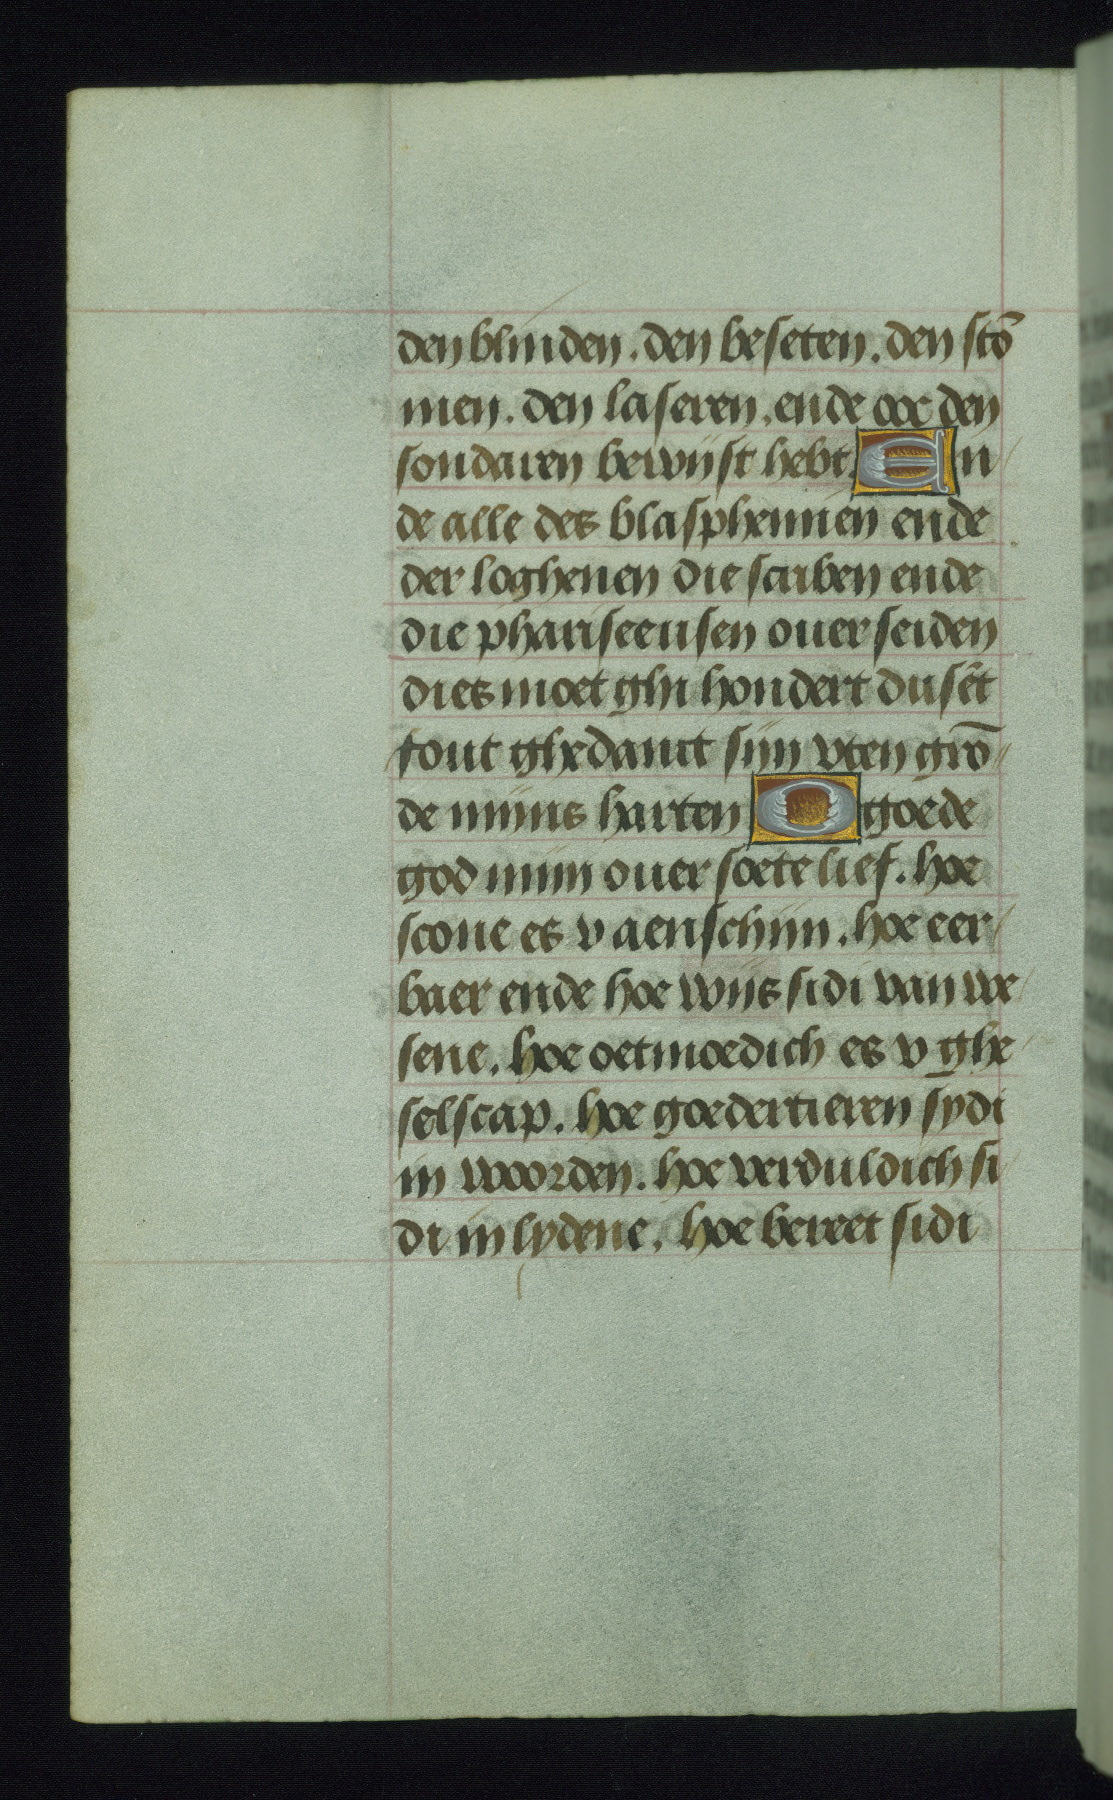 den blinden. den beseten. den stō
men. den laseren. ende ooc den
sondaren bewijst hebt. En
de alle des blasphemien ende
der loghenen die scriben ende
die phariseeusen ouer seiden
dies moet ghi hondert dusēt
fout ghedanct sijn vten grō
de mijns harten O goede
god mijn ouer soete lief. hoe
scone es v aenschijn. hoe eer
baer ende hoe wijs sidi van we
sene. hoe oetmoedich es v ghe
selscap. hoe goedertieren sydi
in woorden. hoe verduldich si
di in lydene. hoe bereet sidi